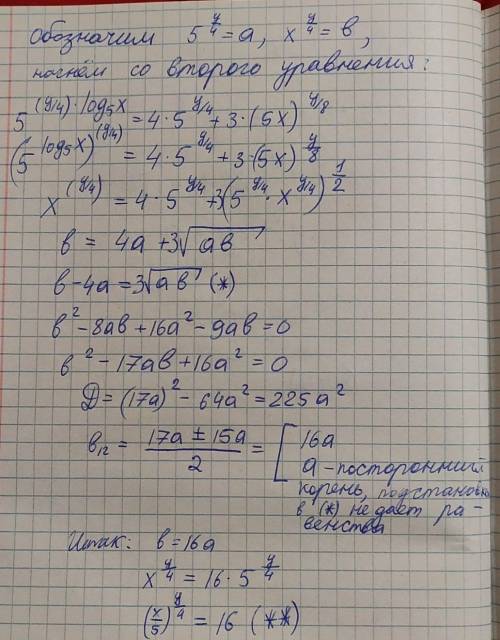 Обозначим 5^(y/4) = a, x^(y/4) = в,
начнём со второго уравнения:
5^((y/4)·log₅x) = 4·5^(y/4) + 3·(5x)^(y/8)
(5^(log₅x))^(y/4) = 4·5^(y/4) + 3·(5x)^(y/8)
x^(y/4) = 4·5^(y/4) + 3(5^(y/4)·x^(y/4))^(1/2)
в = 4a + 3√(aв)
в - 4a = 3√(aв) (*)
в² - 8aв + 16a² - 9aв = 0
в² - 17aв + 16a² = 0
D = (17a)² - 64a² = 225a²
в₁₂ = (17a ± 15a)/2 = [ 16a
a - посторонний
корень, подстановка
в (*) не даёт ра-
венства
Итак: в = 16a
x^(y/4) = 16·5^(y/4)
(x/5)^(y/4) = 16 (**)